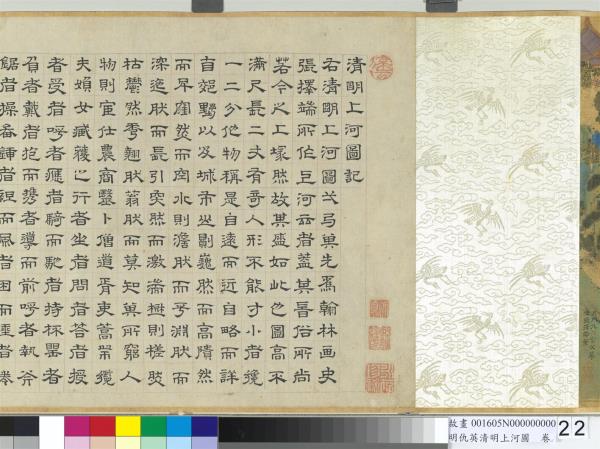 清明上河圖記
右清明上河圖弌為翰林画史
張擇端所作上河云者蓋其旹俗所尚
若今之上塚然故其盛如此也圖高不
滿尺長二丈有奇人形不能寸小者纔
一二分他物稱是自遠而近自略而詳
自郊野以及城市山則巍然而高隤然
而卑窪然而空水則澹然而平淵然而
深迤然而長引突然而激湍樹則槎然
枯鬱然秀翹然蓊然而莫知其所窮人
物則官仕農商醫卜僧道胥吏篙師纜
夫婦女臧獲之行者坐者問者答者授
者受者呼者應者騎而馳者持杯罍者
負者戴者抱而攜者導而前呼者執斧
鋸者操畚鍤者袒而風者困而睡者
故畫 001605N000000000
明仇英清明上河圖 卷
22